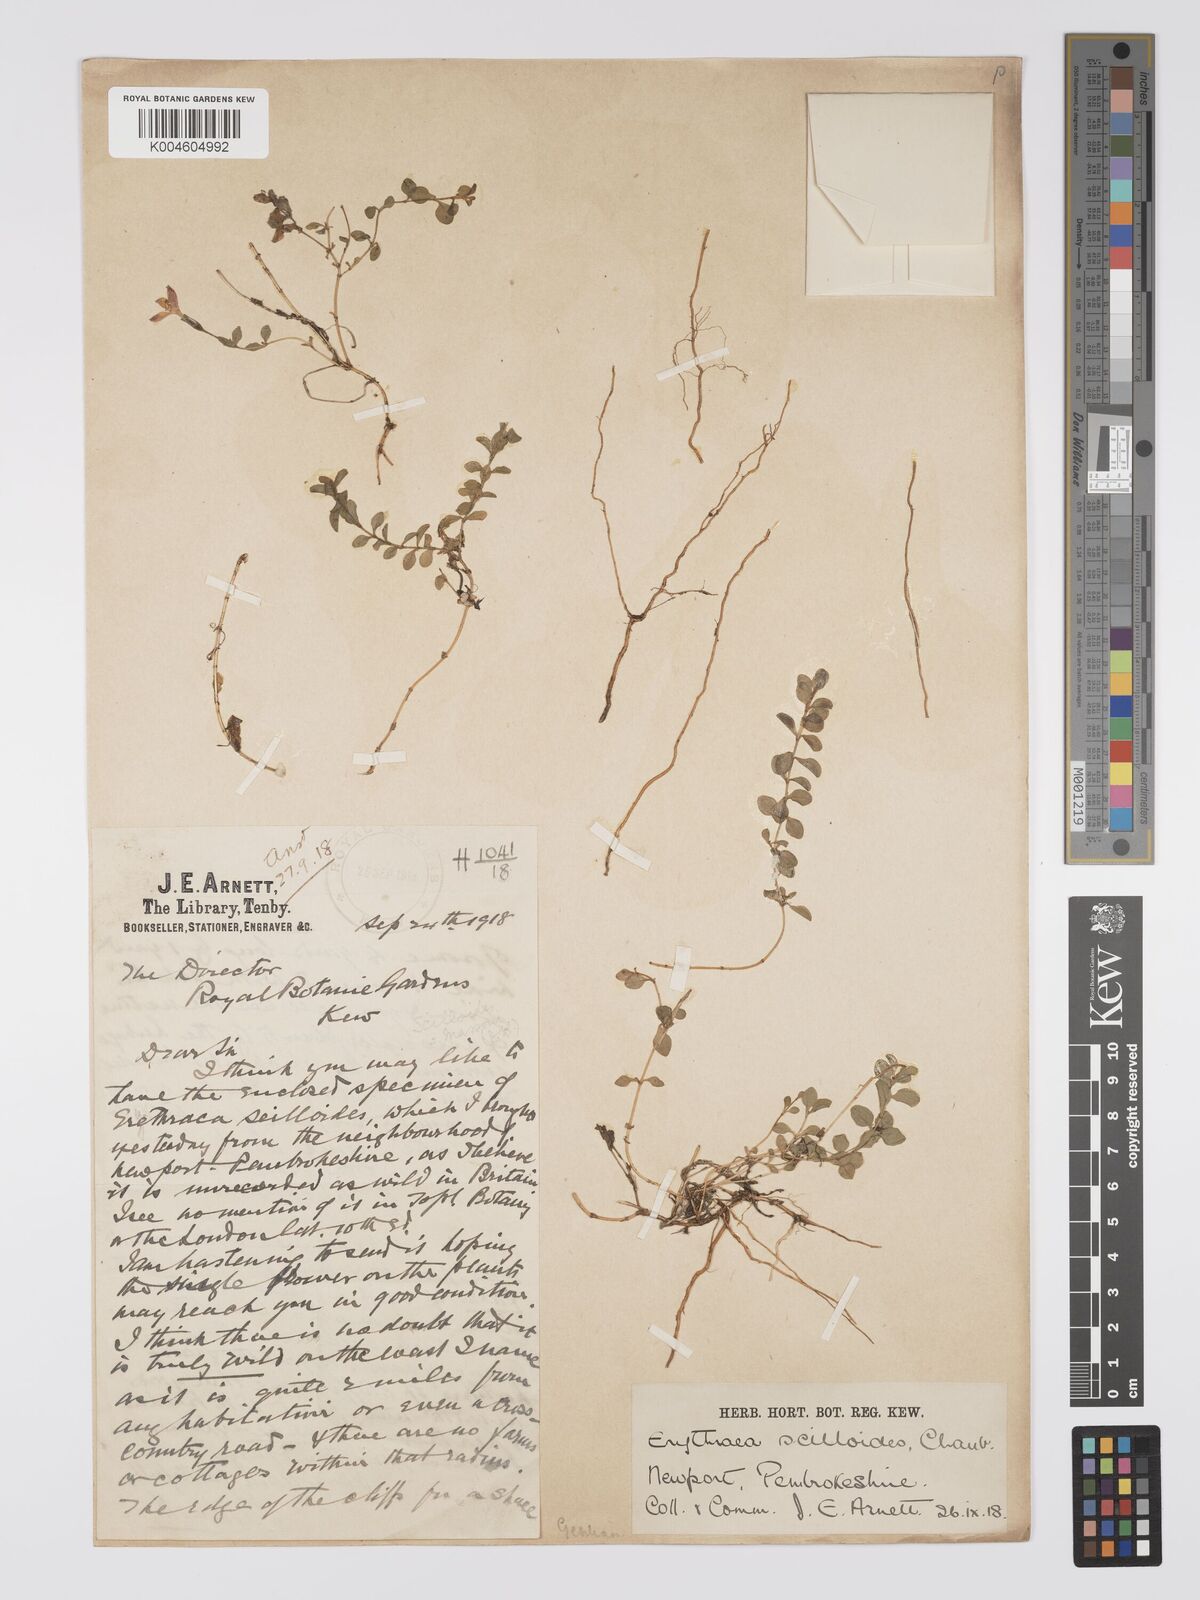 ROYAL BOTANIC GARDENS KEW
K004604992
p
Ansd
27.9.18
H 1041/18
J. E. ARNETT,
The Library, Tenby.
BOOKSELLER, STATIONER, ENGRAVER &C.
Sep 24th 1918
The Director
Royal Botanic Gardens
Kew
Dear Sir
I think you may like to
have the enclosed specimen of
Erethraea scilloides, which I brought
yesterday from the neighbourhood of
Newport Pembrokeshire, as I believe
it is unrecorded as wild in Britain
I see no mention of it in Topl. Botany
or the London Cat. 10th Ed.
I am hastening to send it hoping
the single flower on the plants
may reach you in good condition.
I think there is no doubt that it
is truly wild on the coast I name
as it is quite 2 miles from
any habitation or even a cross-
country road - & there are no farms
or cottages within that radius.
The edge of the cliffs for a
HERB. HORT. BOT. REG. KEW.
Erythraea scilloides, Chaub.
Newport, Pembrokeshire.
Coll. & Comm. J. E. Arnett. 26.ix.18.
Gentian
Density
Don Williams
M001219
centimeters
Royal Botanic Gardens
Kew
copyright reserved
0 1 2 3 4 5 6 7 8 9 10
cm